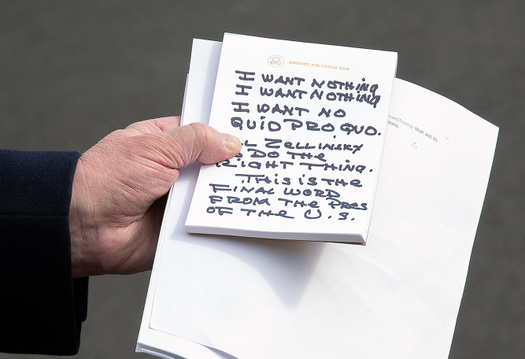 ABOARD AIR FORCE ONE
I WANT NOTHING
I WANT NOTHING
I WANT NO
QUID PRO QUO.
L ZELLINSKY
DO THE
RIGHT THING.
THIS IS THE
FINAL WORD
FROM THE PRES
OF THE U.S.